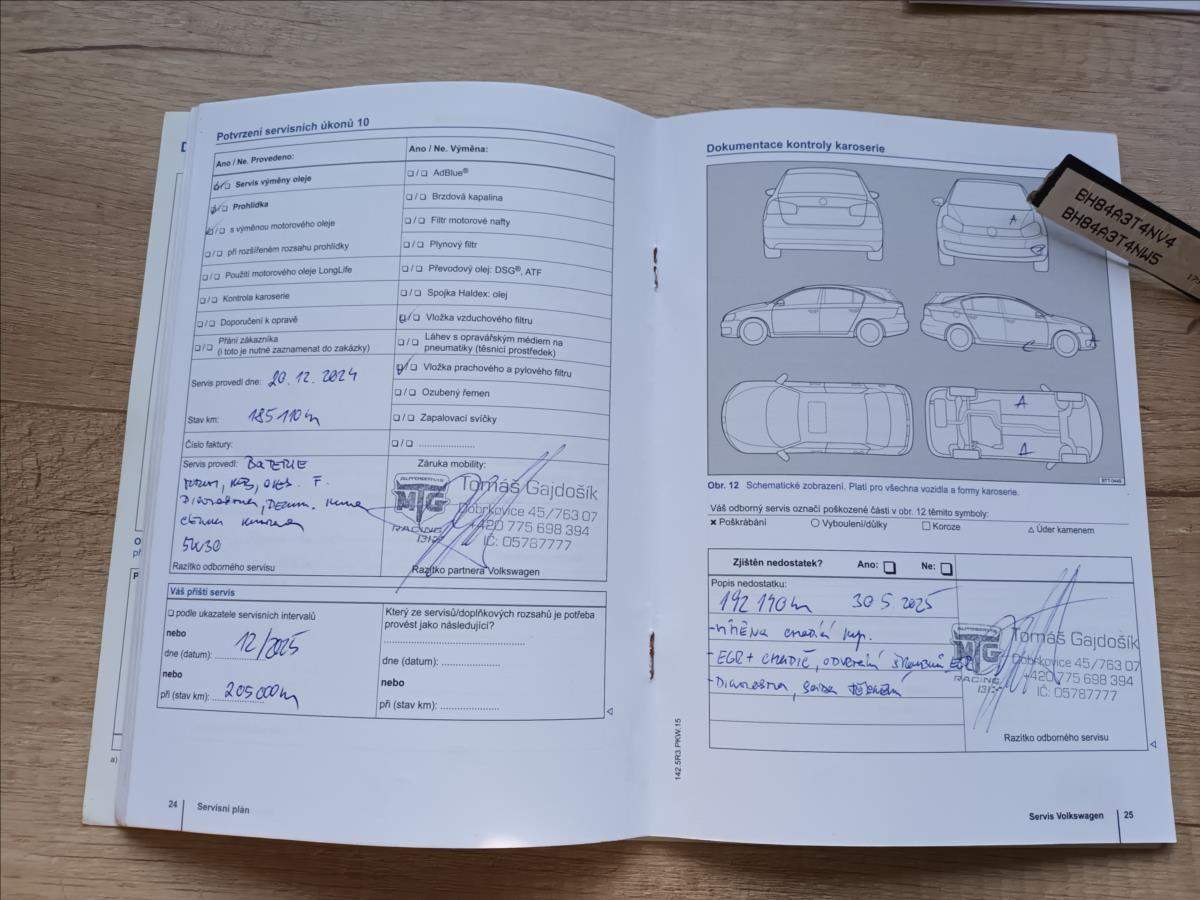 Potvrzení servisních úkonů 10
Ano / Ne. Provedeno:
Servis výměny oleje
Prohlídka
s výměnou motorového oleje
při rozšířeném rozsahu prohlídky
Použití motorového oleje LongLife
Kontrola karoserie
Doporučení k opravě
Přání zákazníka
(i toto je nutné zaznamenat do zakázky)
Servis provedl dne: 20.12.2024
Stav km: 185 110 km
Číslo faktury:
Servis provedl: BATERIE
5W30
Razítko odborného servisu
Ano / Ne. Výměna:
AdBlue®
Brzdová kapalina
Filtr motorové nafty
Plynový filtr
Převodový olej: DSG®, ATF
Spojka Haldex: olej
Vložka vzduchového filtru
Láhev s opravářským médiem na
pneumatiky (těsnicí prostředek)
Vložka prachového a pylového filtru
Ozubený řemen
Zapalovací svíčky
Záruka mobility:
MTG
RACING
Tomáš Gajdošík
Dobrkovice 45/763 07
+420 775 698 394
IČ: 05787777
Razítko partnera Volkswagen
Váš příští servis
podle ukazatele servisních intervalů
nebo
dne (datum): 12/2025
nebo
při (stav km): 205 000 km
Který ze servisů/doplňkových rozsahů je potřeba
provést jako následující?
dne (datum):
nebo
při (stav km):
24 Servisní plán
Dokumentace kontroly karoserie
BH84A3T4NV4
BH84A3T4NW5
A
C
A
A
Obr. 12 Schematické zobrazení. Platí pro všechna vozidla a formy karoserie.
Váš odborný servis označí poškozené části v obr. 12 těmito symboly:
× Poškrábání ○ Vyboulení/důlky □ Koroze △ Úder kamenem
Zjištěn nedostatek? Ano: Ne:
Popis nedostatku:
192 190 km 30.5.2025
- VÝMĚNA chladící kap.
- EGR + CHLADIČ,
- Diagnostika,
MTG
RACING
Tomáš Gajdošík
Dobrkovice 45/763 07
+420 775 698 394
IČ: 05787777
Razítko odborného servisu
142.5R3.PKW.15
Servis Volkswagen 25